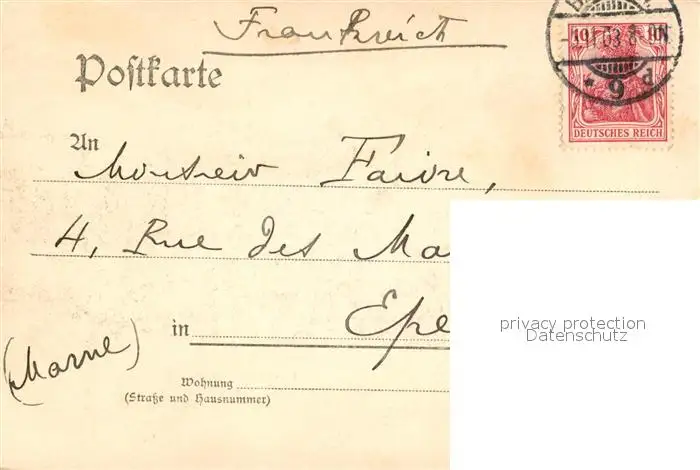 Frankreich
Postkarte
19.11.03.8-9N
DEUTSCHES REICH
An Monsieur Faivre,
4, Rue des Ma
in Epe
(Marne)
Wohnung
(Straße und Hausnummer)
privacy protection
Datenschutz